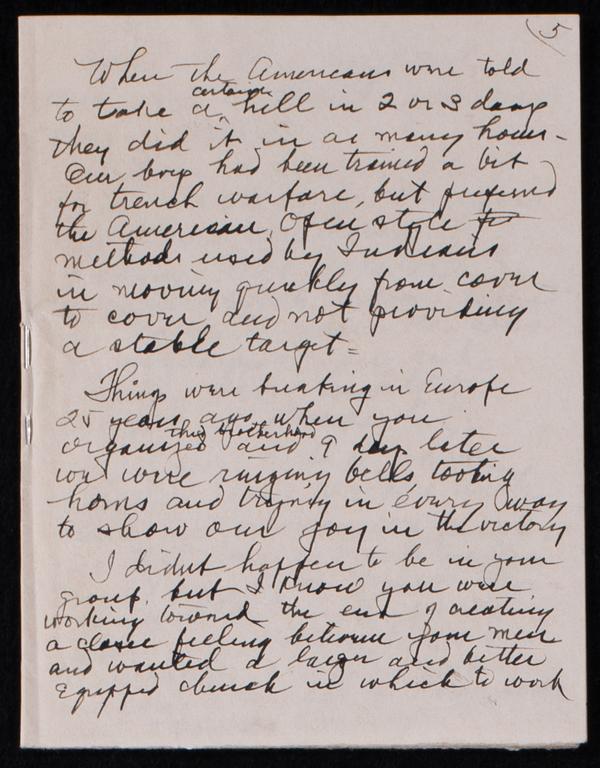 5
When the Americans were told
certain
to take a hill in 2 or 3 days
they did it in as many hours -
Our boys had been trained a bit
for trench warfare, but preferred
the American, Open style to
methods used by Indians
in moving quickly from cover
to cover and not providing
a stable target =
Things were breaking in Europe
25 years ago when you
this brotherhood
organized and 9 days later
we were ringing bells, tooting
horns and trying in every way
to show our joy in the victory
I didnt happen to be in your
group, but I know you were
working toward the end of creating
a closer feeling between your men
and wanted a larger and better
equipped church in which to work